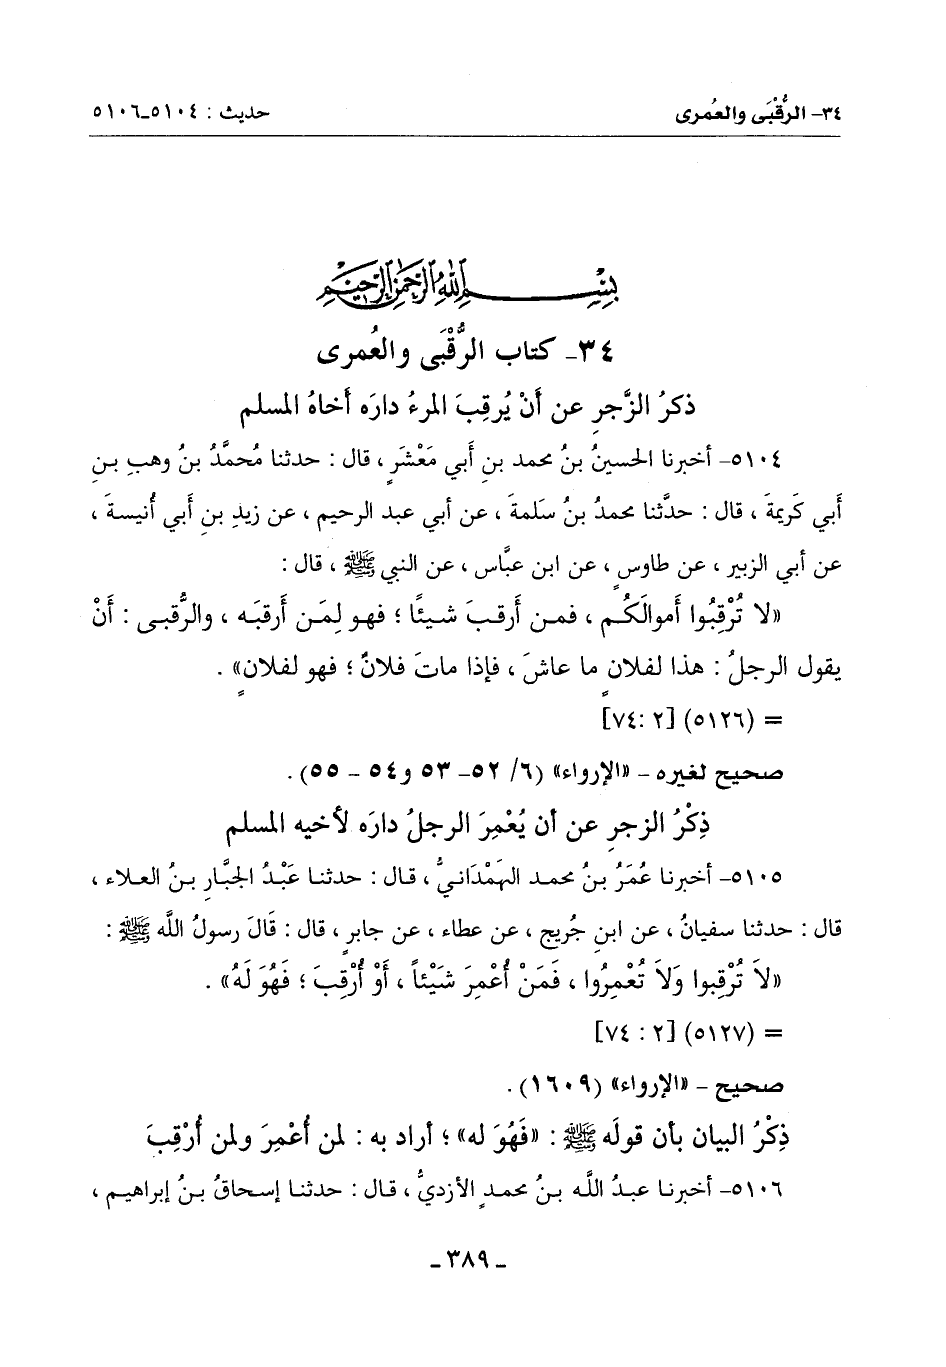 ٣٤- الرُّقْبَى والعُمرى
حديث : ٥١٠٤-٥١٠٦
بِسْمِ اللهِ الرَّحْمٰنِ الرَّحِيْمِ
٣٤- كتاب الرُّقْبَى والعُمرى
ذكرُ الزَّجرِ عن أنْ يُرقِبَ المرءُ دارَه أخاهُ المسلم
٥١٠٤- أخبرنا الحسينُ بنُ محمد بنِ أبي مَعْشَرٍ ، قال : حدثنا مُحمَّدُ بنُ وهبِ بنِ
أبي كَريمةَ ، قال : حدَّثنا محمدُ بنُ سَلَمةَ ، عن أبي عبد الرحيم ، عن زيدِ بنِ أبي أُنيسةَ ،
عن أبي الزبير ، عن طاوسٍ ، عن ابن عبَّاس ، عن النبي ﷺ ، قال :
«لا تُرْقِبُوا أموالَكُم ، فمن أرقبَ شيئًا ؛ فهو لِمَن أَرقبَه ، والرُّقبى : أنْ
يقول الرجلُ : هذا لفلانٍ ما عاشَ ، فإذا ماتَ فلانٌ ؛ فهو لفلانٍ» .
= (٥١٢٦) [٢ :٧٤]
صحيح لغيره - «الإرواء» (٦/ ٥٢- ٥٣ و٥٤ - ٥٥) .
ذِكْرُ الزجرِ عن أن يُعْمِرَ الرجلُ دارَه لأخيه المسلم
٥١٠٥- أخبرنا عُمَرُ بنُ محمد الهَمْدَانيُّ ، قال : حدثنا عَبْدُ الجبَّارِ بنُ العلاء ،
قال : حدثنا سفيانُ ، عن ابنِ جُريج ، عن عطاء ، عن جابرٍ ، قال : قَالَ رسولُ اللَّه ﷺ :
«لاَ تُرْقِبوا وَلاَ تُعْمِرُوا ، فَمَنْ أُعْمِرَ شَيْئاً ، أَوْ أُرْقِبَ ؛ فَهُوَ لَهُ» .
= (٥١٢٧) [٢ : ٧٤]
صحيح - «الإرواء» (١٦٠٩) .
ذِكْرُ البيان بأن قولَه ﷺ : «فَهُوَ له» ؛ أراد به : لمن أُعْمِرَ ولمن أُرْقِبَ
٥١٠٦- أخبرنا عبدُ اللَّه بنُ محمدٍ الأزديُّ ، قال : حدثنا إسحاقُ بنُ إبراهيم ،
- ٣٨٩ -